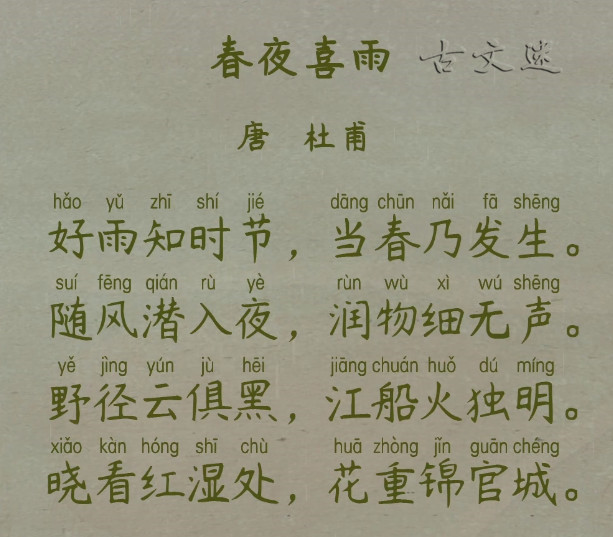 春夜喜雨 古文迷
唐 杜甫
hǎo yǔ zhī shí jié dāng chūn nǎi fā shēng
好雨知时节，当春乃发生。
suí fēng qián rù yè rùn wù xì wú shēng
随风潜入夜，润物细无声。
yě jìng yún jù hēi jiāng chuán huǒ dú míng
野径云俱黑，江船火独明。
xiǎo kàn hóng shī chù huā zhòng jǐn guān chéng
晓看红湿处，花重锦官城。